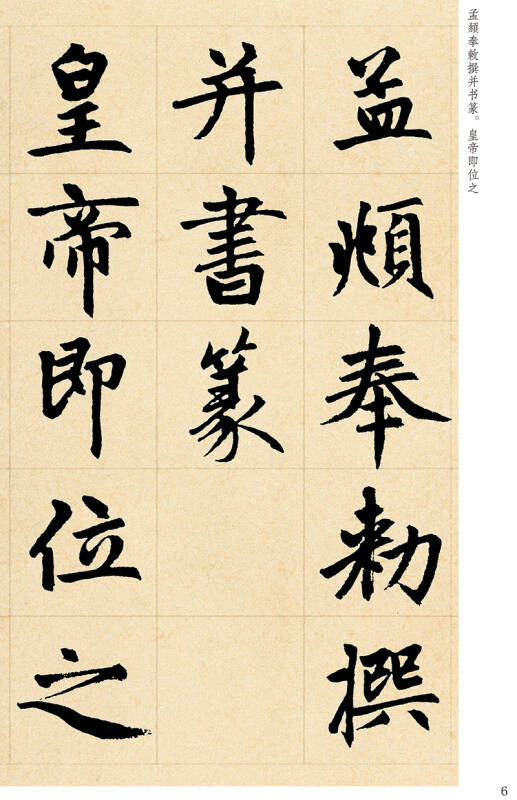 孟頫奉敕撰并书篆。皇帝即位之
孟頫奉勅撰
并書篆
皇帝即位之
6